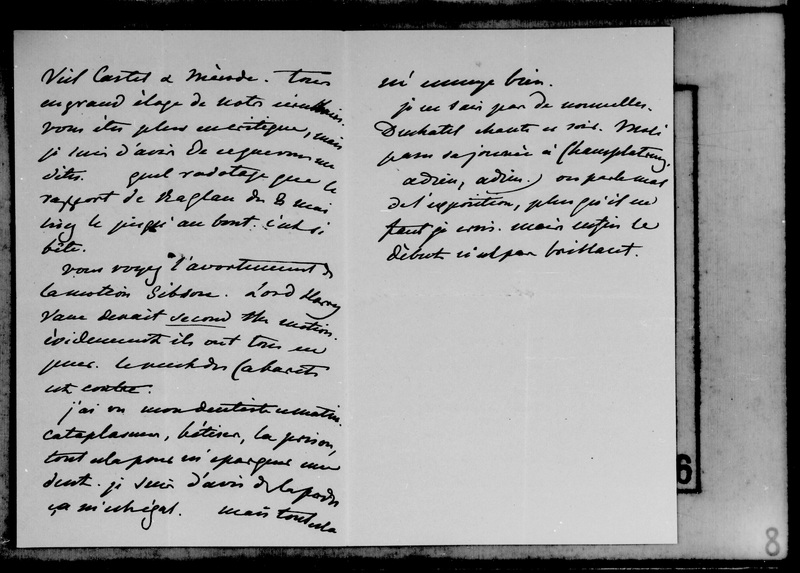 Viel Castel & Mérode. tous
en grand éloge de notre
vous êtes plus critique, mais
je suis d'avis de ce que vous me
dites. quel radotage que le
rapport de Raglan du 8 mai
lisez le jusqu'au bout. c'est si
bête.
vous voyez l'avortement de
la motion Gibson. Lord Harry
Vane devait second the motion.
évidemment ils ont tous eu
peur. le vent des Cabarets
est contre.
j'ai vu mon dentiste ce matin.
cataplasmes, bêtises, la prison,
tout cela pour m'épargner une
dent. je suis d'avis de la perdre
ça m'est égal. mais tout cela
m'ennuye bien.
je ne sais pas de nouvelles.
Duchatel chante ce soir. Molé
passe sa journée à Champlatreux.
adieu, adieu. on parle mal
de l'exposition, plus qu'il ne
faut je crois. mais enfin le
début n'est pas brillant.
6
8